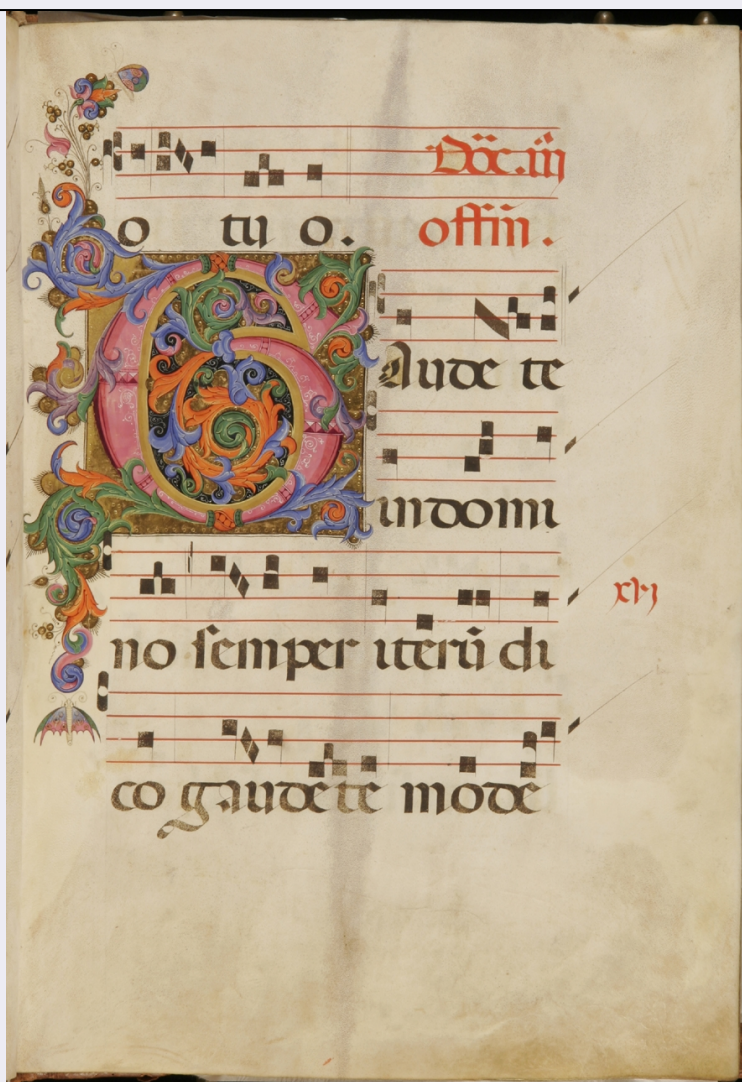 Dōc.iii
o tu o. offm̄.
GAude te
in domi
no semper iterū di
xvj
co gaudete mode